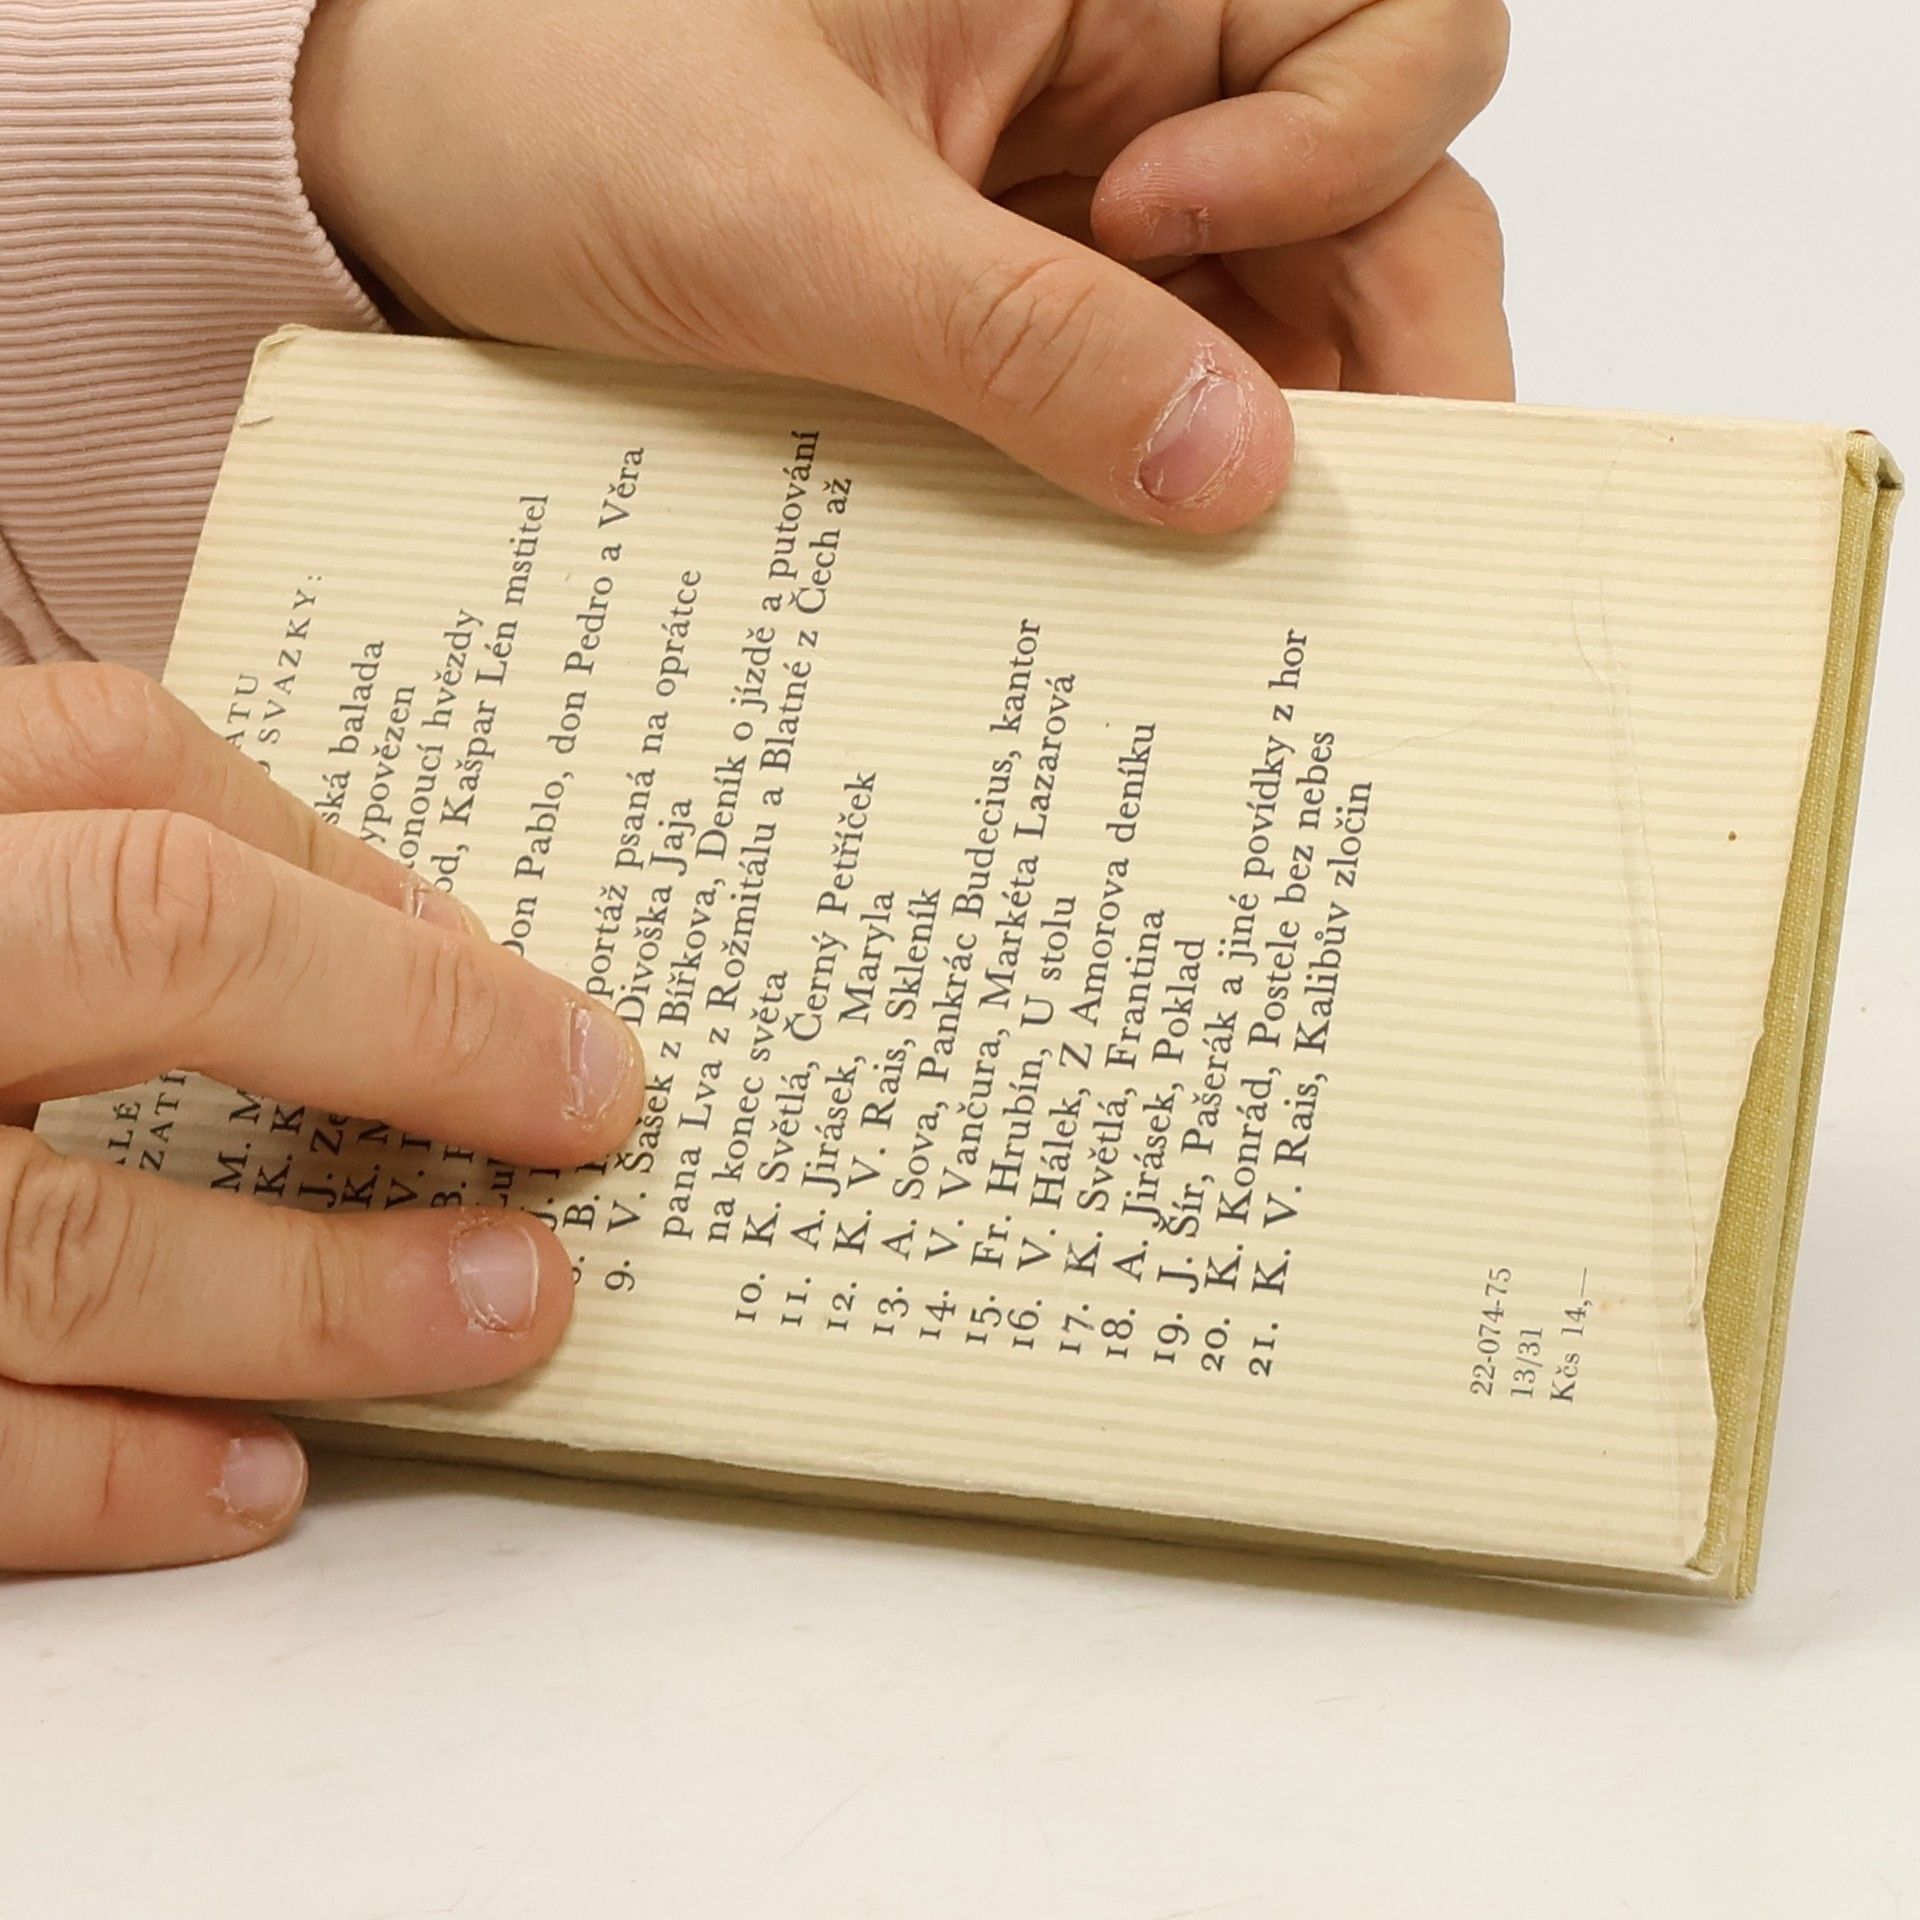 ALÉ ATU
ZATÍ O SVAZKY:
M. M ská balada
K. K ypovězen
J. Ze onoucí hvězdy
K. M od, Kašpar Lén mstitel
V. 
B. Don Pablo, don Pedro a Věra
J. portáž psaná na oprátce
B. Divoška Jaja
9. V. Šašek z Bířkova, Deník o jízdě a putování
pana Lva z Rožmitálu a Blatné z Čech až
na konec světa
10. K. Světlá, Černý Petříček
11. A. Jirásek, Maryla
12. K. V. Rais, Skleník
13. A. Sova, Pankrác Budecius, kantor
14. V. Vančura, Markéta Lazarová
15. Fr. Hrubín, U stolu
16. V. Hálek, Z Amorova deníku
17. K. Světlá, Frantina
18. A. Jirásek, Poklad
19. J. Šír, Pašerák a jiné povídky z hor
20. K. Konrád, Postele bez nebes
21. K. V. Rais, Kalibův zločin
22-074-75
13/31
Kčs 14,—